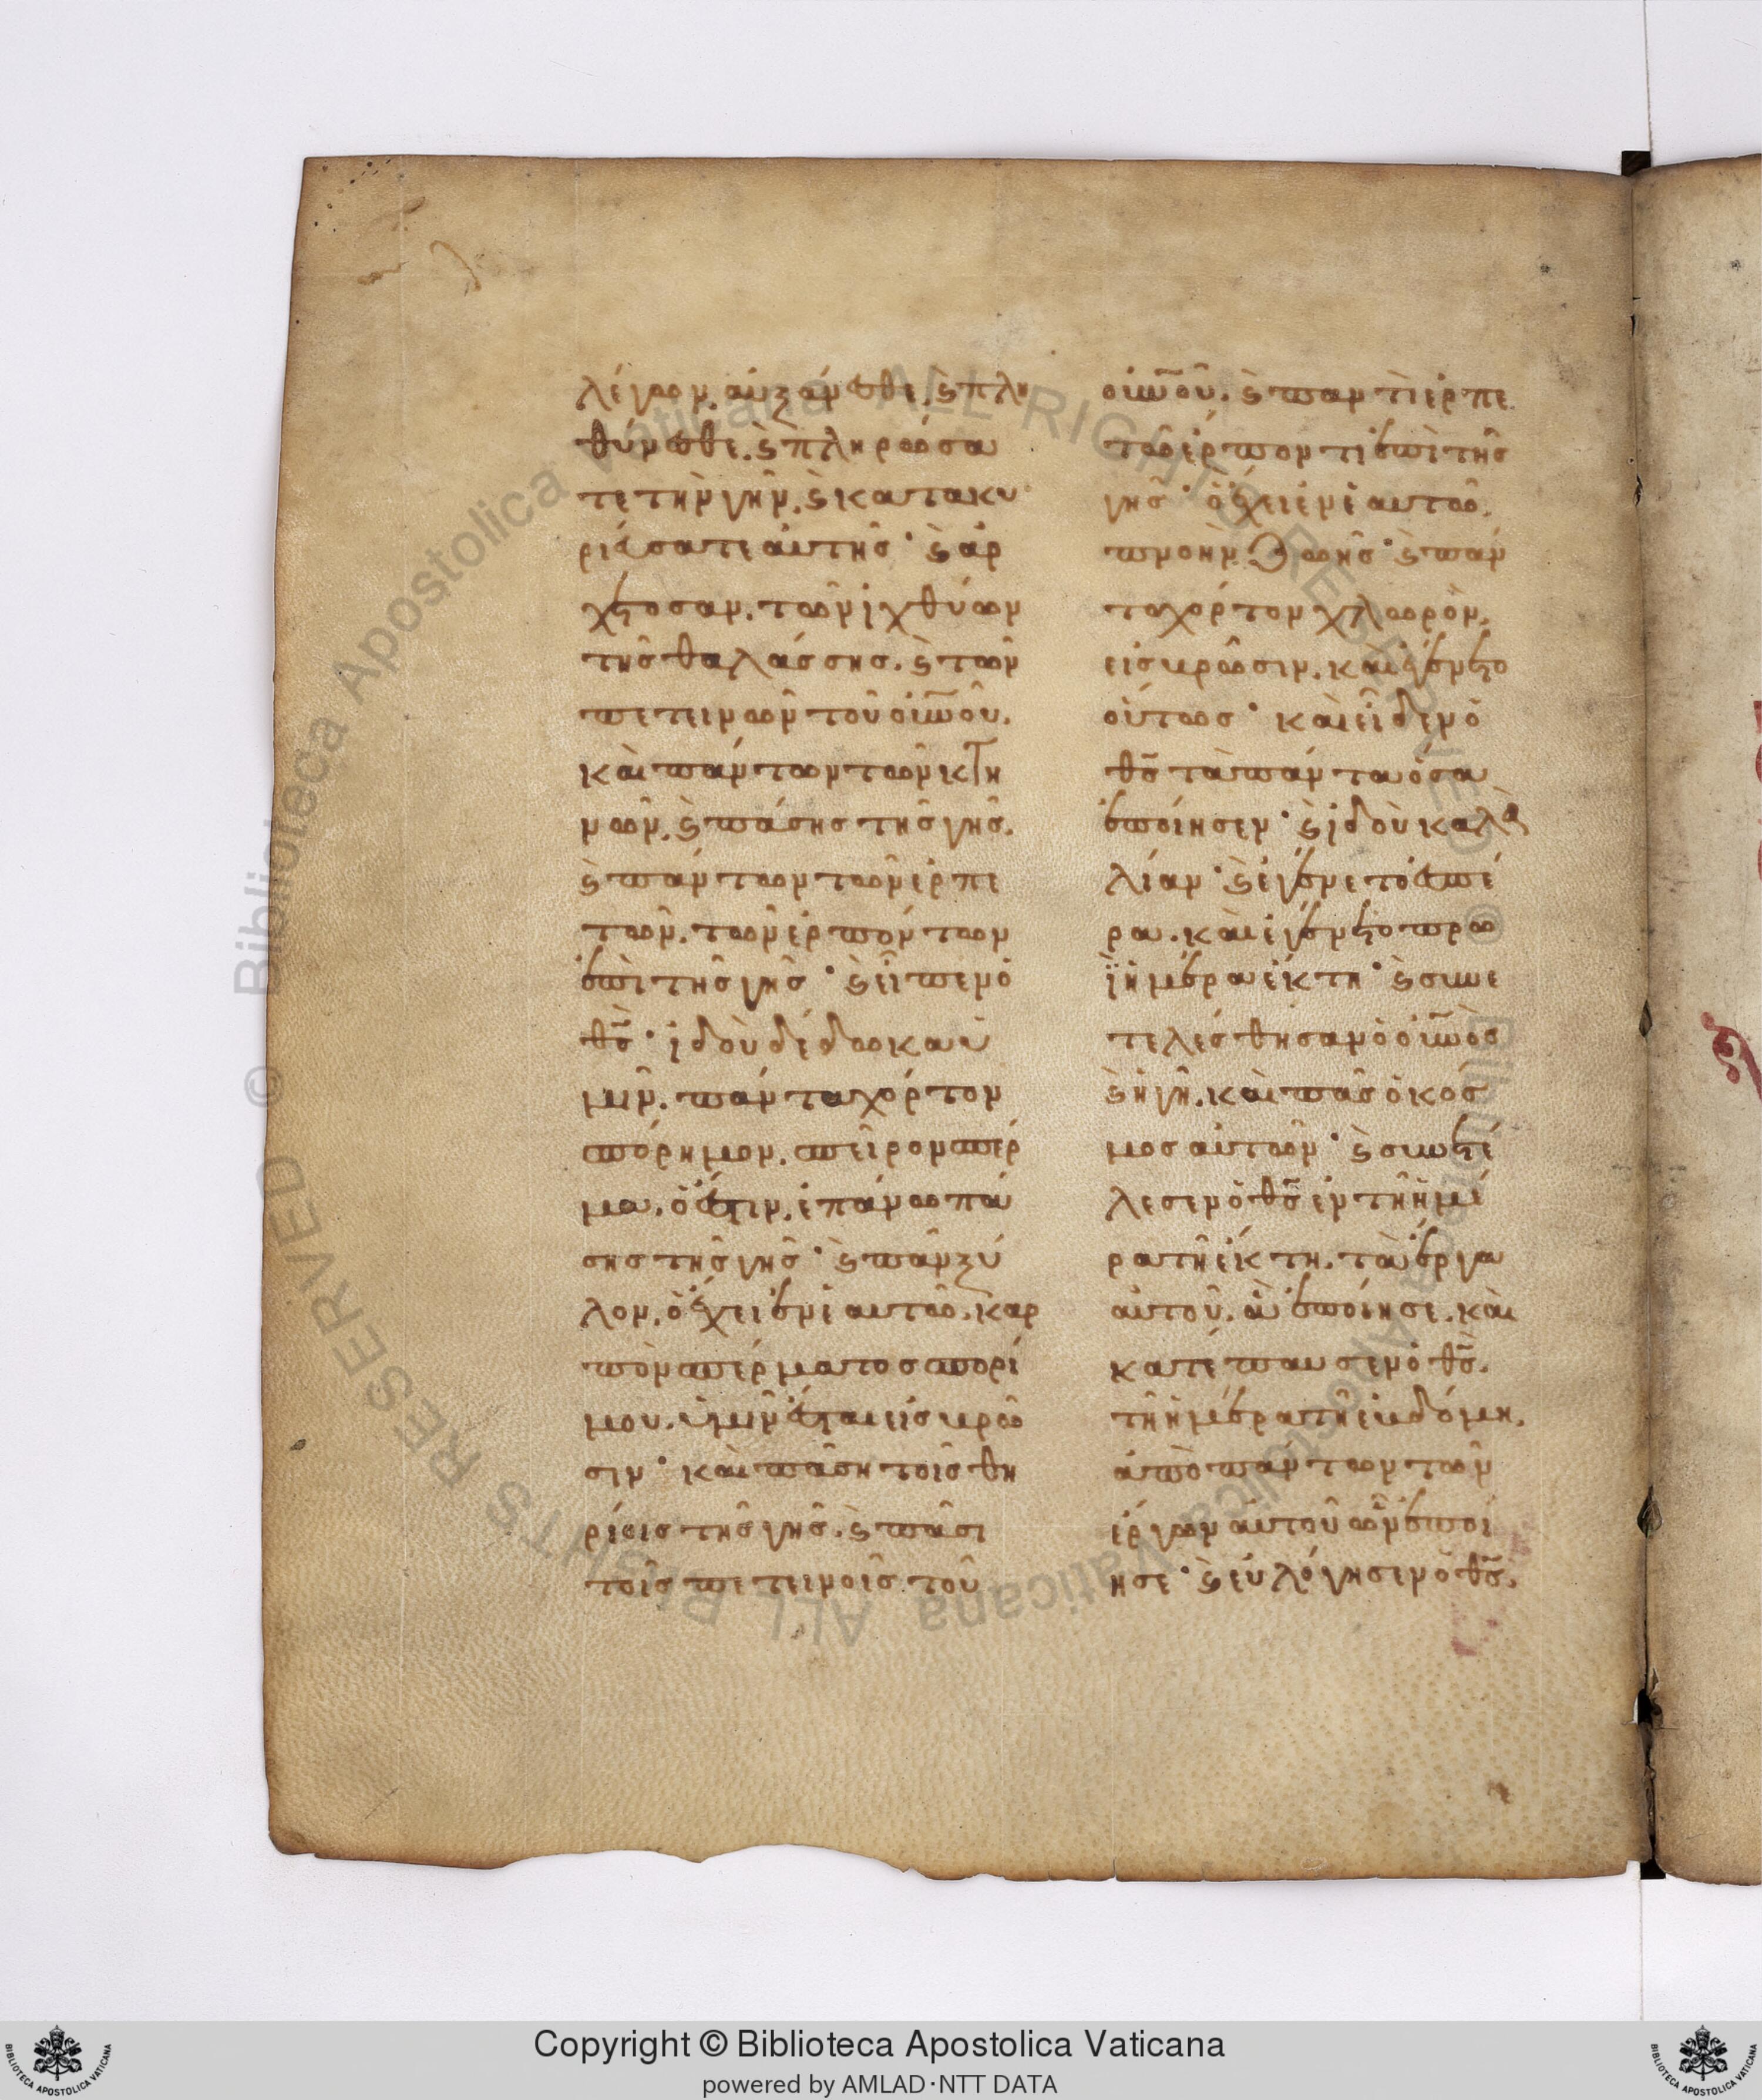 λέγων. αὐξάνσθε. ϛ πλη
θύνσθε. ϛ πληρώσα
τε τὴν γῆν. ϛ κατακυ
ριεύσατε αὐτῆς· ϛ ἀρ
χέτωσαν. τῶν ἰχθύων
τῆς θαλάσσης. ϛ τῶν
πετεινῶν τοῦ οὐν̅οῦ.
καὶ πάντων τῶν κτη
νῶν. ϛ πάσης τῆς γῆς.
ϛ πάντων τῶν ἑρπε
τῶν. τῶν ἑρπόντων
ἐπὶ τῆς γῆς· ϛ εἶπεν ὁ
θς̅· ἰδοὺ δέδωκα ὑ
μῖν. πάντα χόρτον
σπόρημον. σπεῖρον σπέρ
μα. ὅ ἐστιν. ἐπάνω πά
σης τῆς γῆς· ϛ πᾶν ξύ
λον. ὃ ἔχει ἐν ἑαυτῶ. καρ
πὸν σπέρματος σπορί
μου. ὑμῖν ἔσται εἰς βρῶ
σιν· καὶ πᾶση τοῖς θη
ρίοις τῆς γῆς. ϛ πᾶσι
τοῖς πετεινοῖς τοῦ
οὐν̅οῦ. ϛ παντὶ ἑρπε
τῶ ἕρποντι ἐπὶ τῆς
γῆς· ὃ ἔχει ἐν ἑαυτῶ.
πνοὴν ζωῆς· ϛ πάν
τα χόρτον χλωρὸν.
εἰς βρῶσιν. καὶ ἐγένετο
οὕτως· καὶ εἶδεν ὁ
θς̅ τὰ πάντα ὅσα
ἐποίησεν· ϛ ἰδοὺ καλὰ
λίαν· ϛ ἐγένετο ἑσπέ
ρα. καὶ ἐγένετο πρω
ῒ ἡμέρα ἕκτη· ϛ συνε
τελέσθησαν ὁ οὐν̅ὸς
ϛ ἡ γῆ. καὶ πᾶς ὁ κόσ
μος αὐτῶν· ϛ συνετέ
λεσεν ὁ θς̅ ἐν τῆ ἡμέ
ρα τῆ ἕκτη. τὰ ἔργα
αὐτοῦ. ἃ ἐποίησε. καὶ
κατέπαυσεν ὁ θς̅.
τῆ ἡμέρα τῆ ἑβδόμη.
ἀπὸ πάντων τῶν
ἔργων αὐτοῦ ὧν ἐποί
ησε· ϛ εὐλόγησεν ὁ θς̅.
Copyright © Biblioteca Apostolica Vaticana
powered by AMLAD·NTT DATA